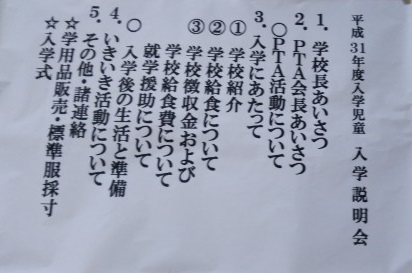 平成31年度入学児童 入学説明会
1．学校長あいさつ
2．PTA会長あいさつ
○PTA活動について
3．入学にあたって
① 学校紹介
② 学校給食について
③ 学校徴収金および
学校給食費について
就学援助について
○ 入学後の生活と準備
4．いきいき活動について
5．その他・諸連絡
☆学用品販売・標準服採寸
☆入学式